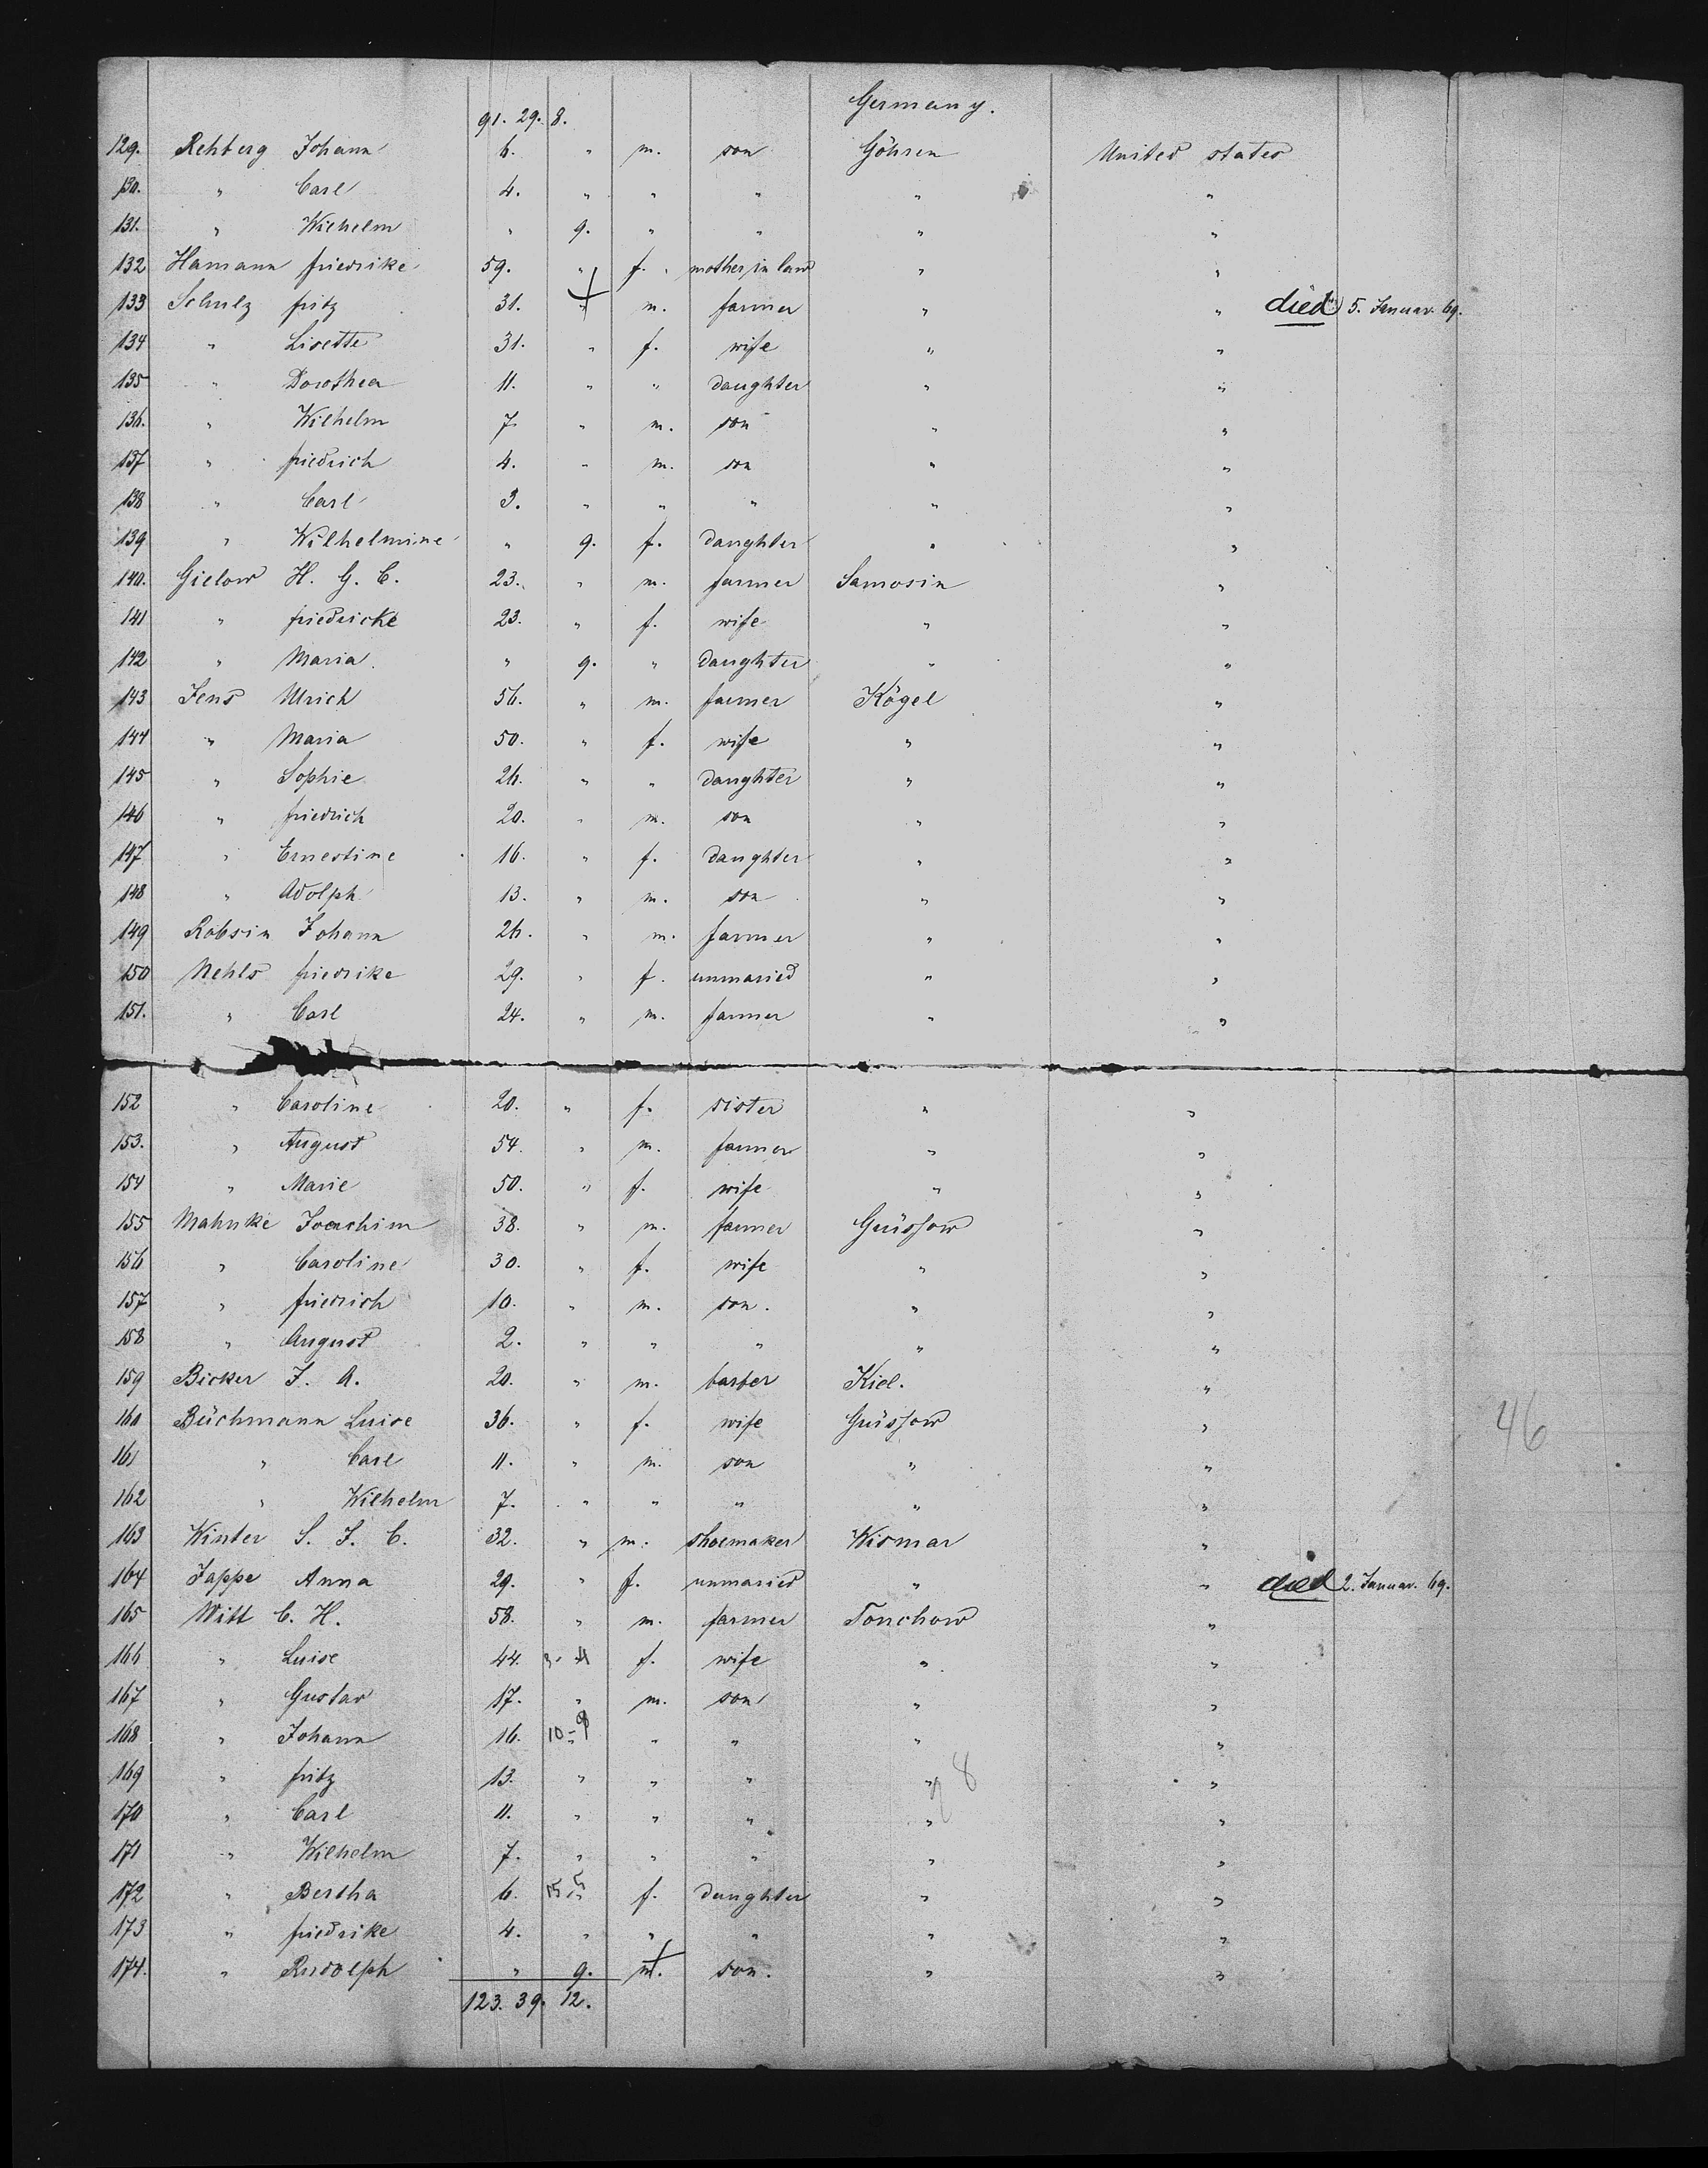 Germany.
91. 29. 8.
129. Rehberg Johann 6. " m. son Göhren United states
130. " Carl 4. " " " " "
131. " Wilhelm " 9. " " " "
132 Hamann friedrike 59. " f. mother in law " "
133 Schulz fritz 31. " m. farmer " " died 5. Januar. 69.
134 " Lisette 31. " f. wife " "
135 " Dorothea 11. " " daughter " "
136. " Wilhelm 7. " m. son " "
137 " friedrich 4. " m. son " "
138 " Carl 3. " " " " "
139 " Wilhelmine " 9. f. daughter " "
140. Gielow H. G. C. 23. " m. farmer Samosin "
141 " friedricke 23. " f. wife " "
142 " Maria " 9. " daughter " "
143 Jens Ulrich 56. " m. farmer Kögel "
144 " Maria 50. " f. wife " "
145 " Sophie 26. " " daughter " "
146 " friedrich 20. " m. son " "
147 " Ernestine 16. " f. daughter " "
148 " Adolph 13. " m. son " "
149 Robsin Johann 26. " m. farmer " "
150 Nehls friedrike 29. " f. unmaried " "
151. " Carl 24. " m. farmer " "
152 " Caroline 20. " f. sister " "
153. " August 54. " m. farmer " "
154 " Marie 50. " f. wife " "
155 Mahnke Joachim 38. " m. farmer Grüssow "
156 " Caroline 30. " f. wife " "
157 " friedrich 10. " m. son. " "
158 " August 2. " " " " "
159 Bicker J. A. 20. " m. barber Kiel. "
160 Büchmann Luise 36. " f. wife Grüssow "
161 " Carl 11. " m. son " "
162 " Wilhelm 7. " " " " "
163 Winter S. J. C. 32. " m. shoemaker Wismar "
164 Jappe Anna 29. " f. unmaried " " died 2. Januar. 69.
165 Witt C. H. 58. " m. farmer Tonchow "
166 " Luise 44. f. wife " "
167 " Gustav 17. " m. son " "
168 " Johann 16. 10-9 " " " "
169 " fritz 13. " " " " "
170 " Carl 11. " " " " "
171 " Wilhelm 7. " " " " "
172 " Bertha 6. f. daughter " "
173 " friedrike 4. " " " " "
174. " Rudolph " 9. m. son. " "
123. 39. 12.
46
98